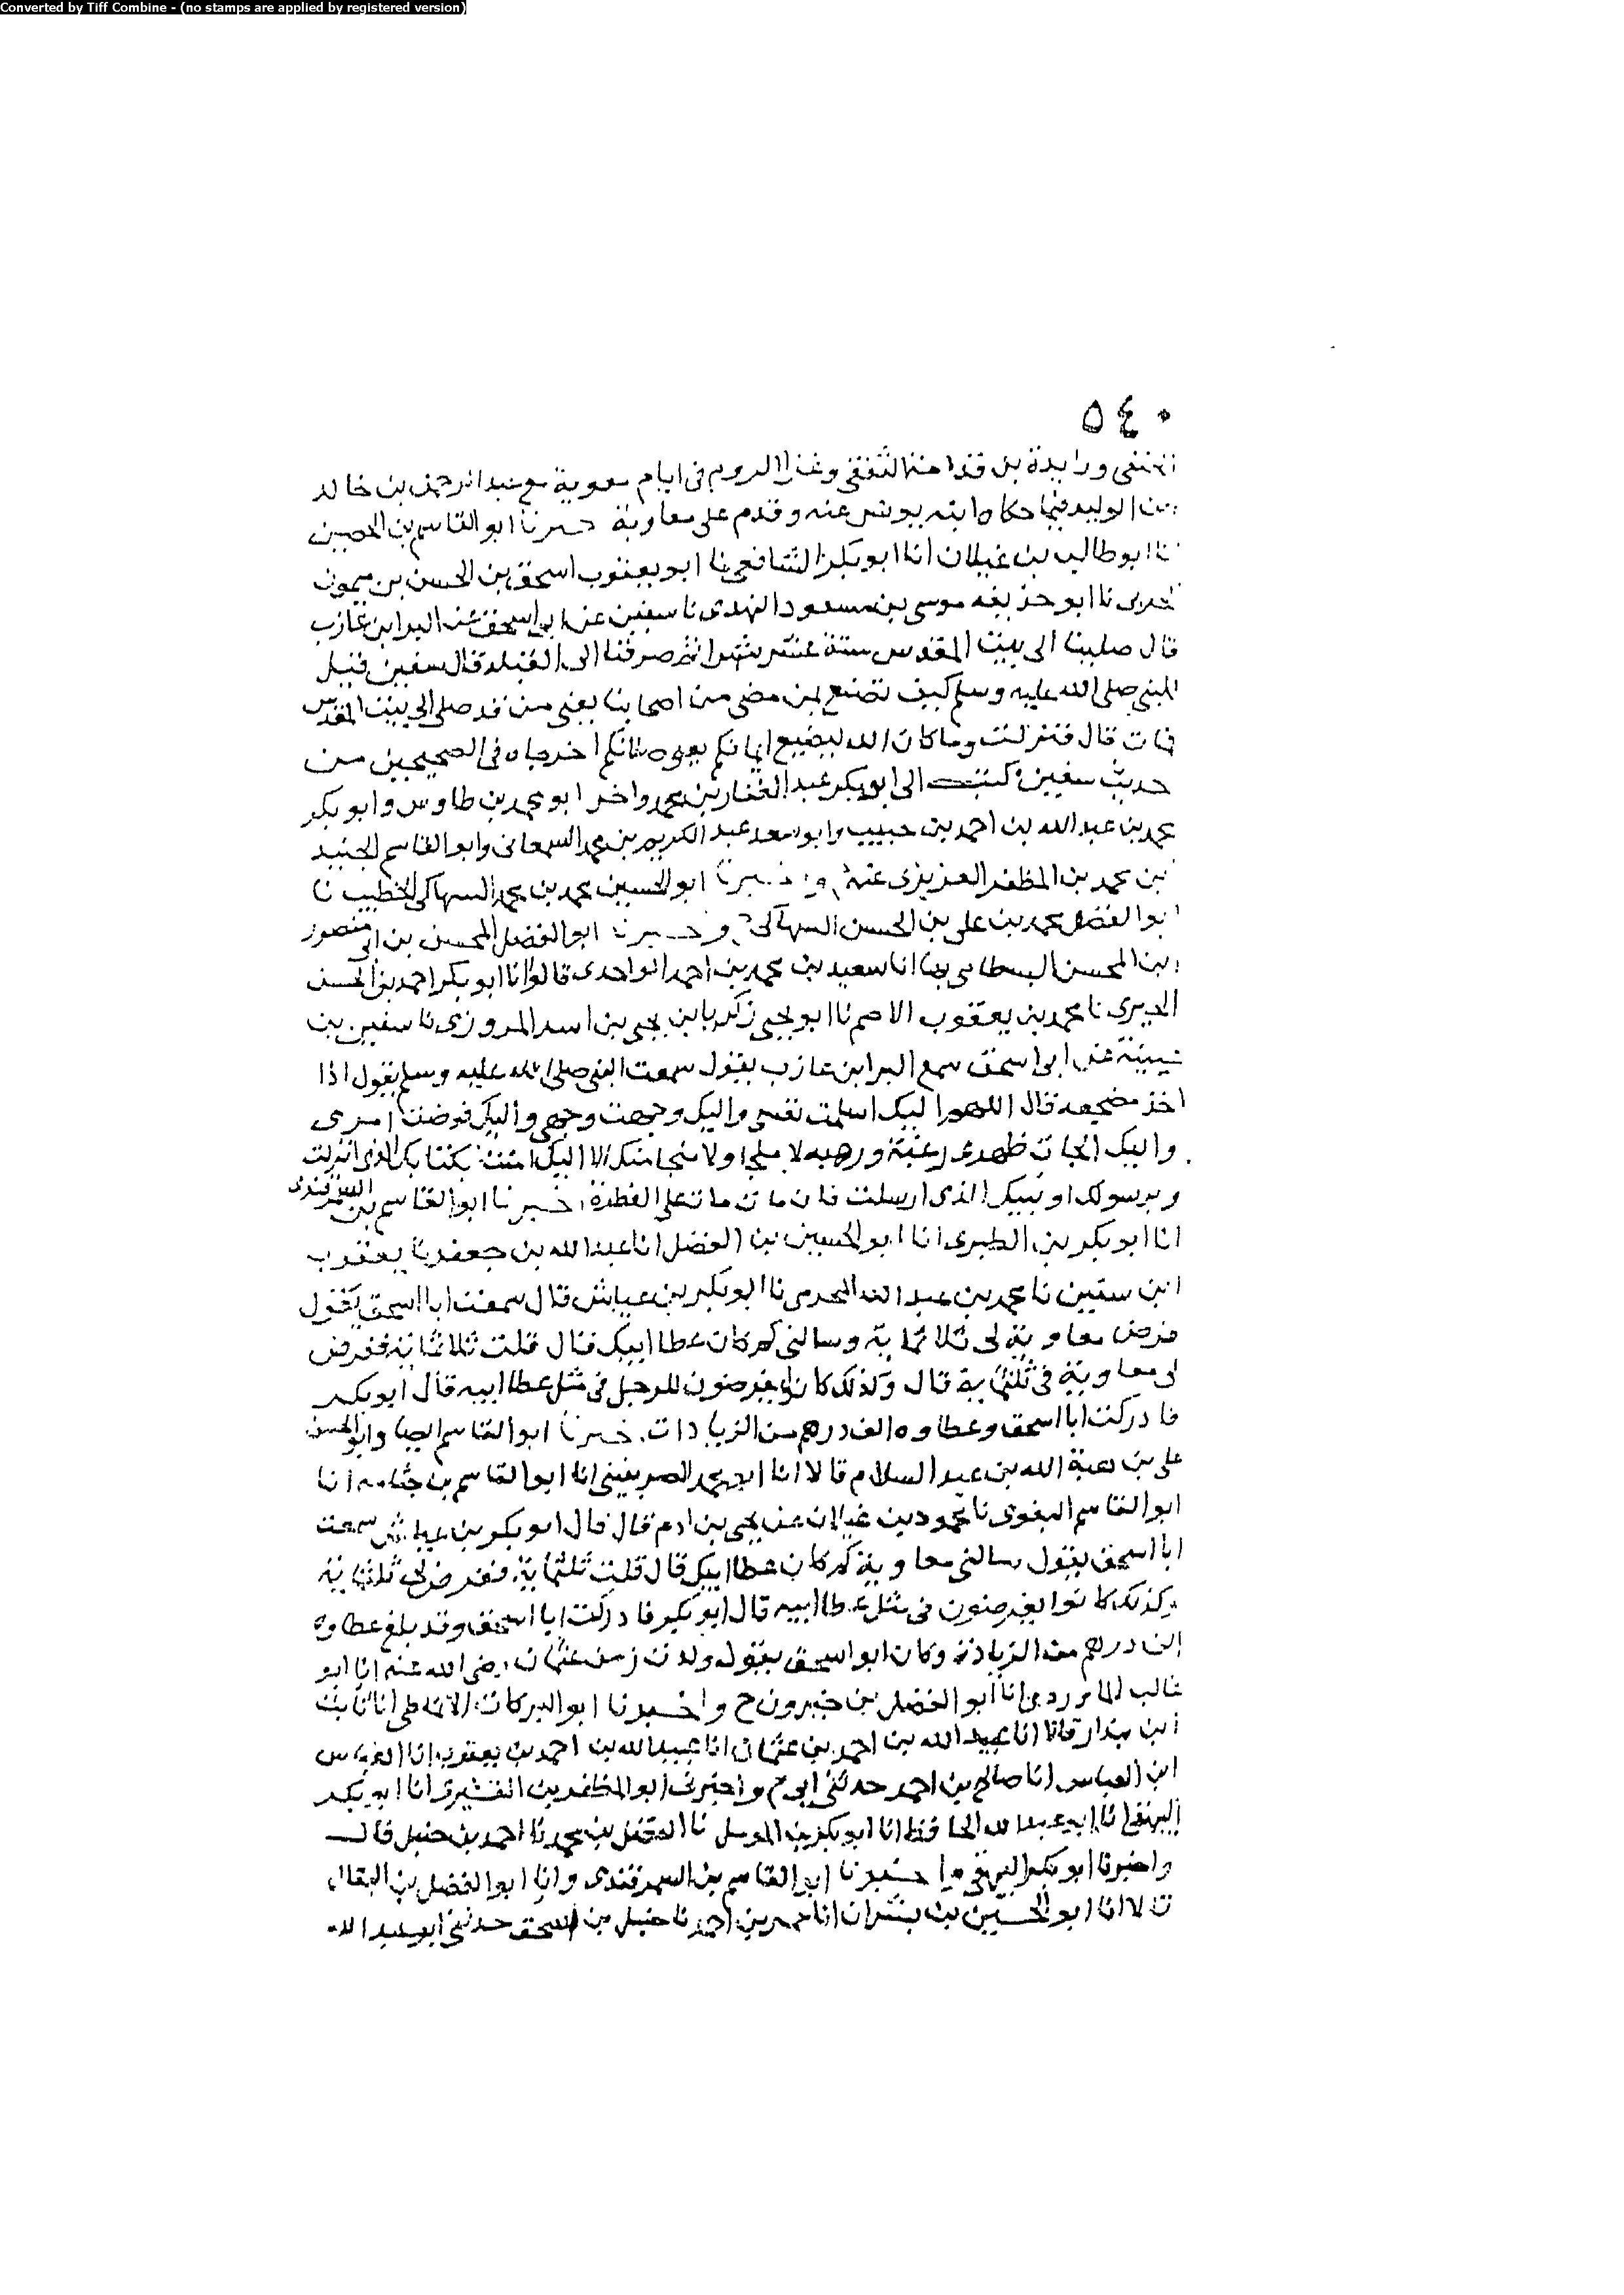 Converted by Tiff Combine - (no stamps are applied by registered version)
٥٤٠
وزايدة بن قدامة الثقفى وغزا الروم فى ايام معوية مع عبد الرحمن بن خالد
بن الوليد فيما حكاه ابنه يونس عنه وقدم على معاوية اخبرنا ابو القاسم بن الحصين
انا ابو طالب بن غيلان انا ابو بكر الشافعى نا ابو يعقوب اسحق بن الحسن بن ميمون
الحربى نا ابو حذيفه موسى بن مسعود النهدى نا سفين عن ابى اسحق عن البرا بن عازب
قال صلينا الى بيت المقدس ستة عشر شهرا ثم صرفنا الى القبله قال سفين فقيل
للنبى صلى الله عليه وسلم كيف تصنع بمن مضى من اصحابنا يعنى من قد صلى الى بيت المقدس
فمات قال فنزلت وما كان الله ليضيع ايمانكم يعنى صلاتكم اخرجاه فى الصحيحين من
حديث سفين كتب الى ابو بكر عبد الغفار بن محمد واخبرنا ابو محمد بن طاوس وابو بكر
محمد بن عبد الله بن احمد بن حبيب وابو سعد عبد الكريم بن محمد السمعانى وابو القاسم الجنيد
بن محمد بن المظفر العزيزى عنه ح واخبرنا ابو الحسين محمد بن محمد السهلكى الخطيب نا
ابو الفضل محمد بن على بن الحسن السهلكى ح واخبرنا ابو الفضل المحسن بن ابى منصور
بن المحسن البسطامى بها انا سعيد بن محمد بن احمد الواحدى قالوا انا ابو بكر احمد بن الحسن
الحيرى نا محمد بن يعقوب الاصم نا ابو يحيى زكريا بن يحيى بن اسد المروزى نا سفين بن
عيينة عن ابى اسحق سمع البرا بن عازب يقول سمعت النبى صلى الله عليه وسلم يقول اذا
اخذ مضجعه قال اللهم اليك اسلمت نفسى واليك وجهت وجهى واليك فوضت امرى
واليك الجات ظهرى رغبة ورهبه لا ملجا ولا منجا منك الا اليك امنت بكتابك الذى انزلت
وبرسولك او نبيك الذى ارسلت فان مات مات على الفطرة اخبرنا ابو القاسم بن السمرقندى
انا ابو بكر بن الطبرى انا ابو الحسين بن الفضل انا عبد الله بن جعفر نا يعقوب
ابن سفين نا محمد بن عبد الله المخرمى نا ابو بكر بن عياش قال سمعت ابا اسحق يقول
فرض معاوية لى ثلاثماية وسالنى كم كان عطا ابيك فقال قلت ثلاثماية ففرض
لى معاوية فى ثلثماية قال وكذلك كانوا يفرضون للرجل فى مثل عطا ابيه قال ابو بكر
فادركت ابا اسحق وعطاوه الف درهم من الزيادات اخبرنا ابو القاسم ايضا وابو الحسن
على بن هبة الله بن عبد السلام قالا انا ابو محمد الصريفينى انا ابو القاسم بن حبابه انا
ابو القاسم البغوى نا محمود بن غيلان عن يحيى بن ادم قال قال ابو بكر بن عياش سمعت
ابا اسحق يقول سالنى معاوية كم كان عطا ابيك قال قلت ثلثماية ففرض لى ثلثماية
وكذلك كانوا يفرضون فى مثل عطا ابيه قال ابو بكر فادركت ابا اسحق وقد بلغ عطاوه
الف درهم من الزيادة وكان ابو اسحق يقول ولدت زمن عثمان رضى الله عنه انا ابو
غالب الماوردى انا ابو الفضل بن خيرون ح واخبرنا ابو البركات الانماطى انا ثابت
ابن بندار قالا انا عبيد الله بن احمد بن عثمان انا عبيد الله بن احمد بن يعقوب انا العباس
ابن العباس انا صالح بن احمد حدثنى ابى ح واخبرنى ابو المظفر بن القشيرى انا ابو بكر
البيهقى انا ابو عبد الله الحافظ انا ابو بكر بن المومل نا الفضل بن محمد نا احمد بن حنبل قال
واخبرنا ابو بكر البيهقى ح واخبرنا ابو القاسم بن السمرقندى وانا ابو الفضل بن البقال
قالا انا ابو الحسين بن بشران انا عمر بن احمد نا حنبل بن اسحق حدثنى ابو عبد الله